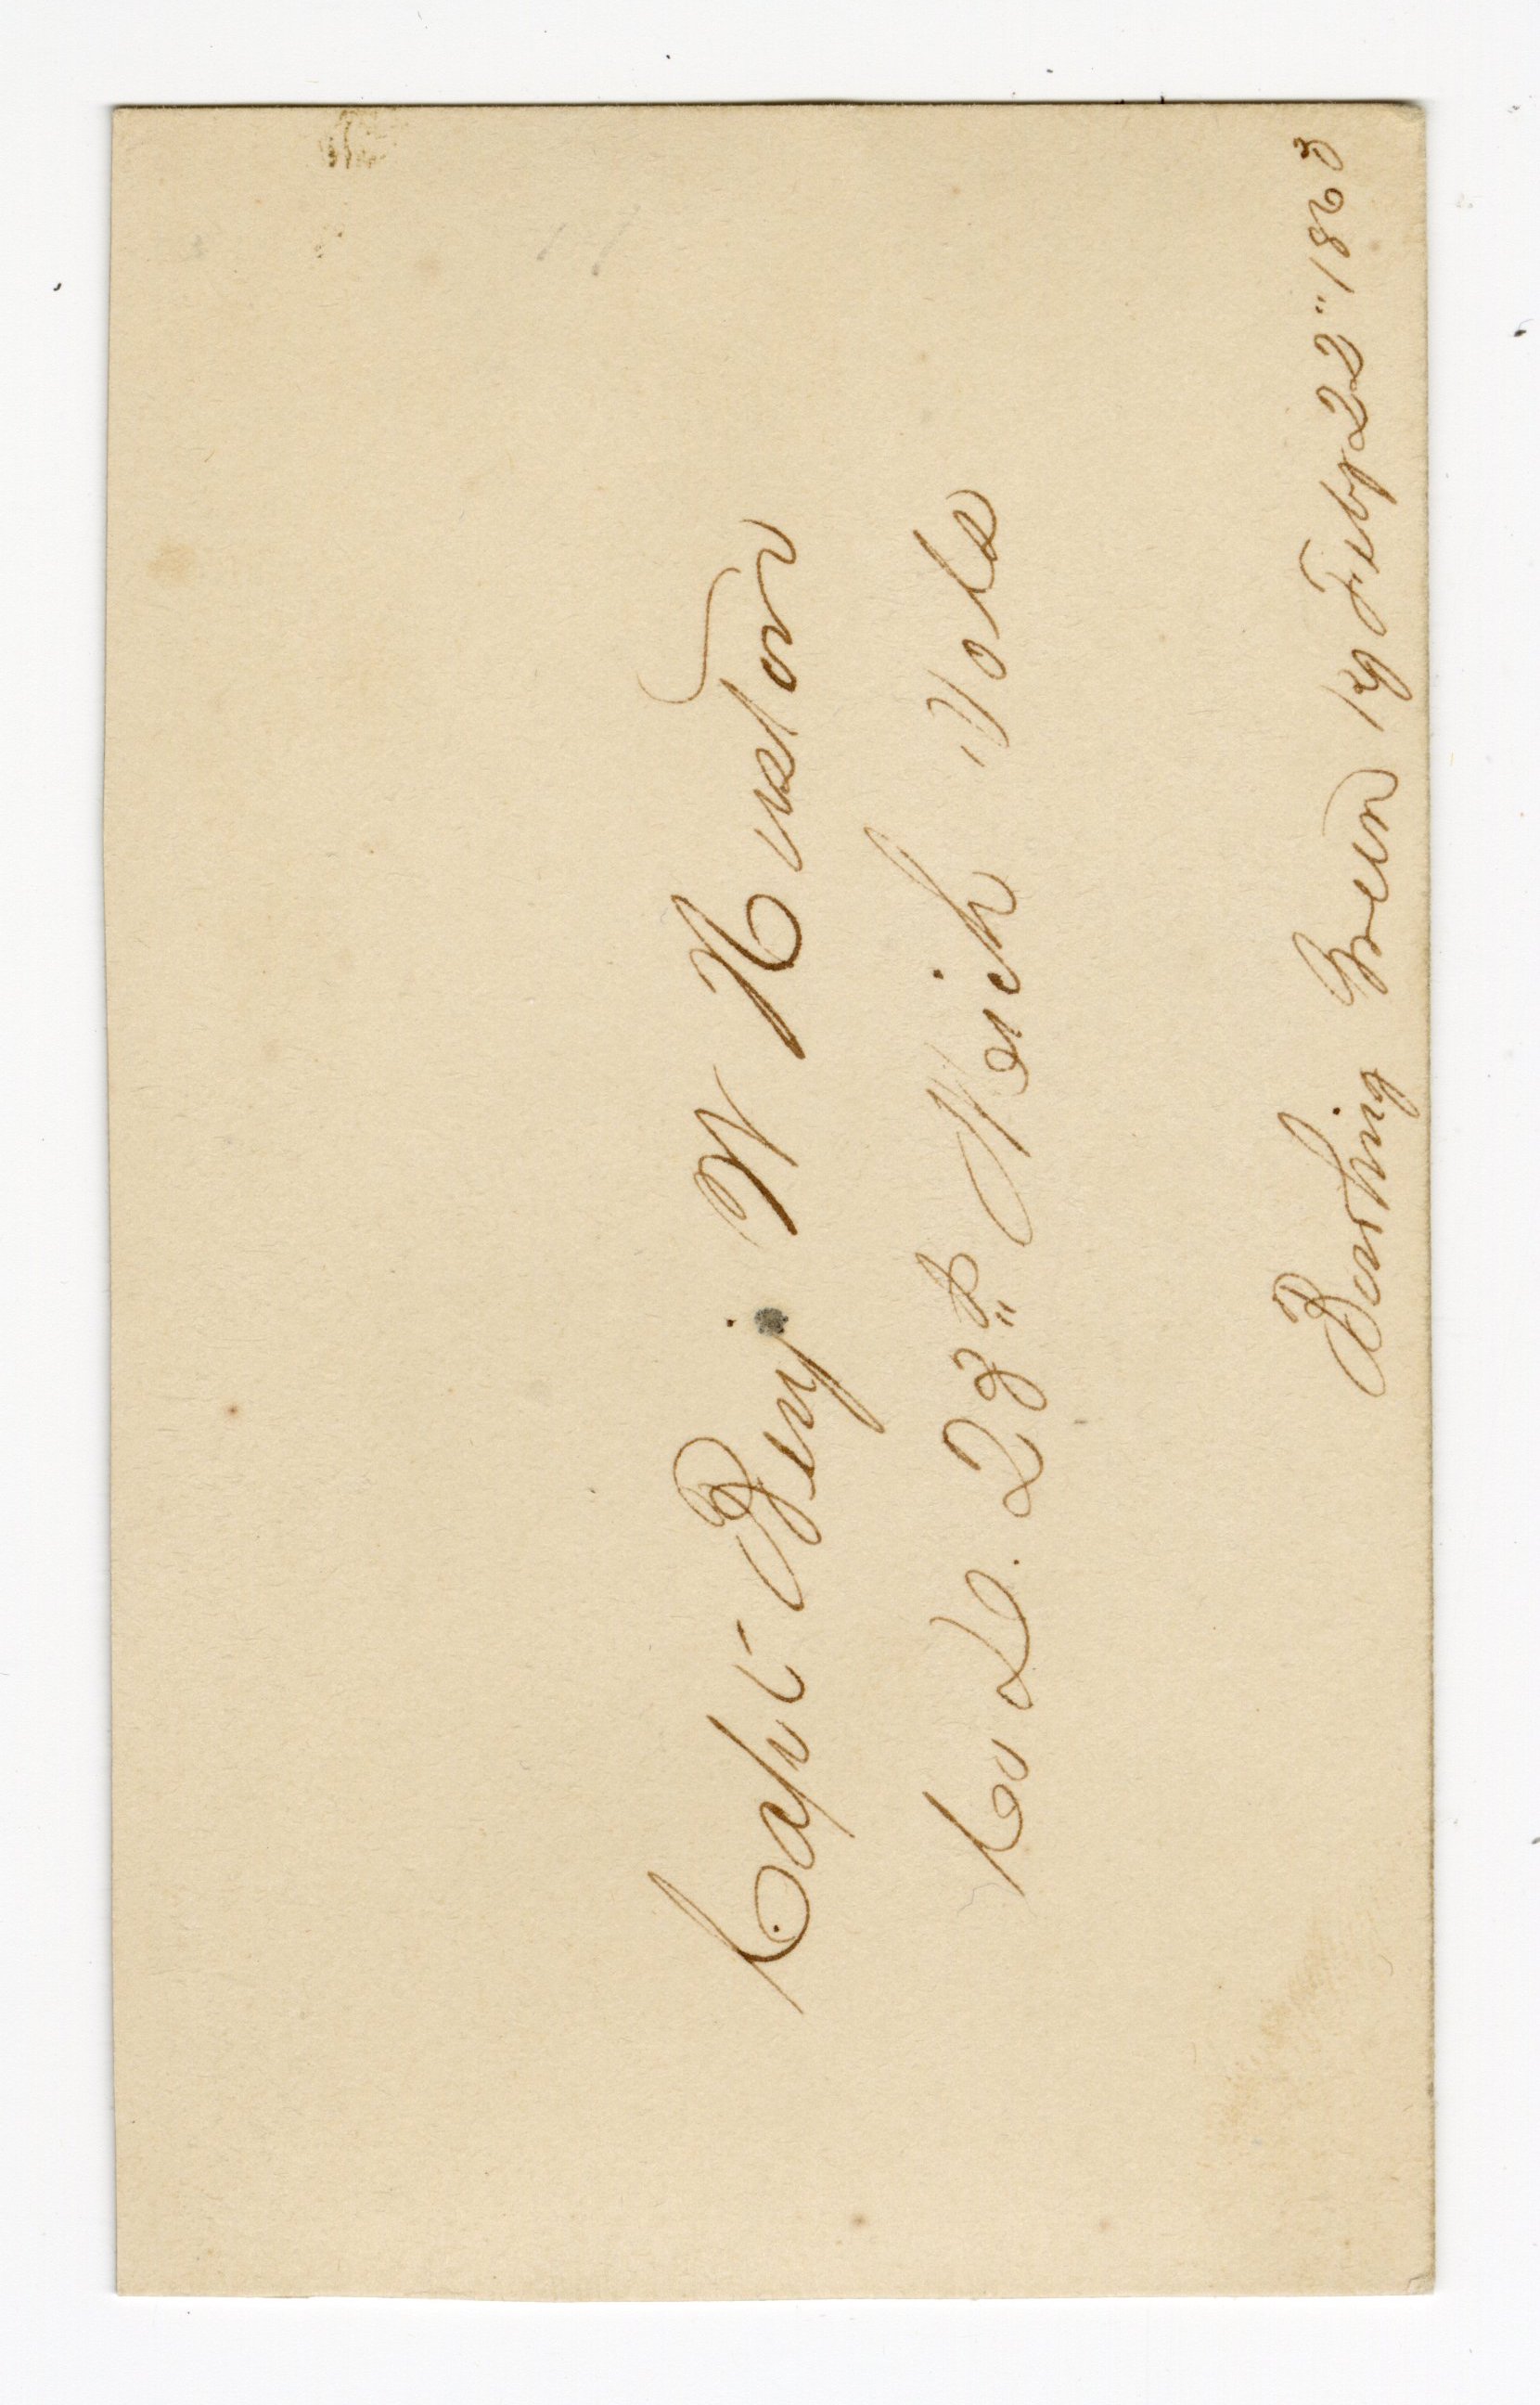 Capt Benj W Huston
Co D. 23d Mich Vols
Bowling Green Ky Feby 22" 1863